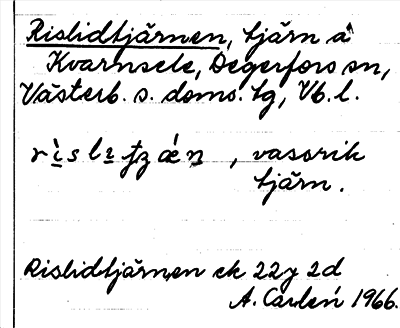 Rislidtjärnen, tjärn å
Kvarnsele, Degerfors sn,
Västerb. s. doms. tg, Vb. l.
, vassrik
tjärn.
Rislidtjärnen ek 22y 2d
A. Carlén 1966.